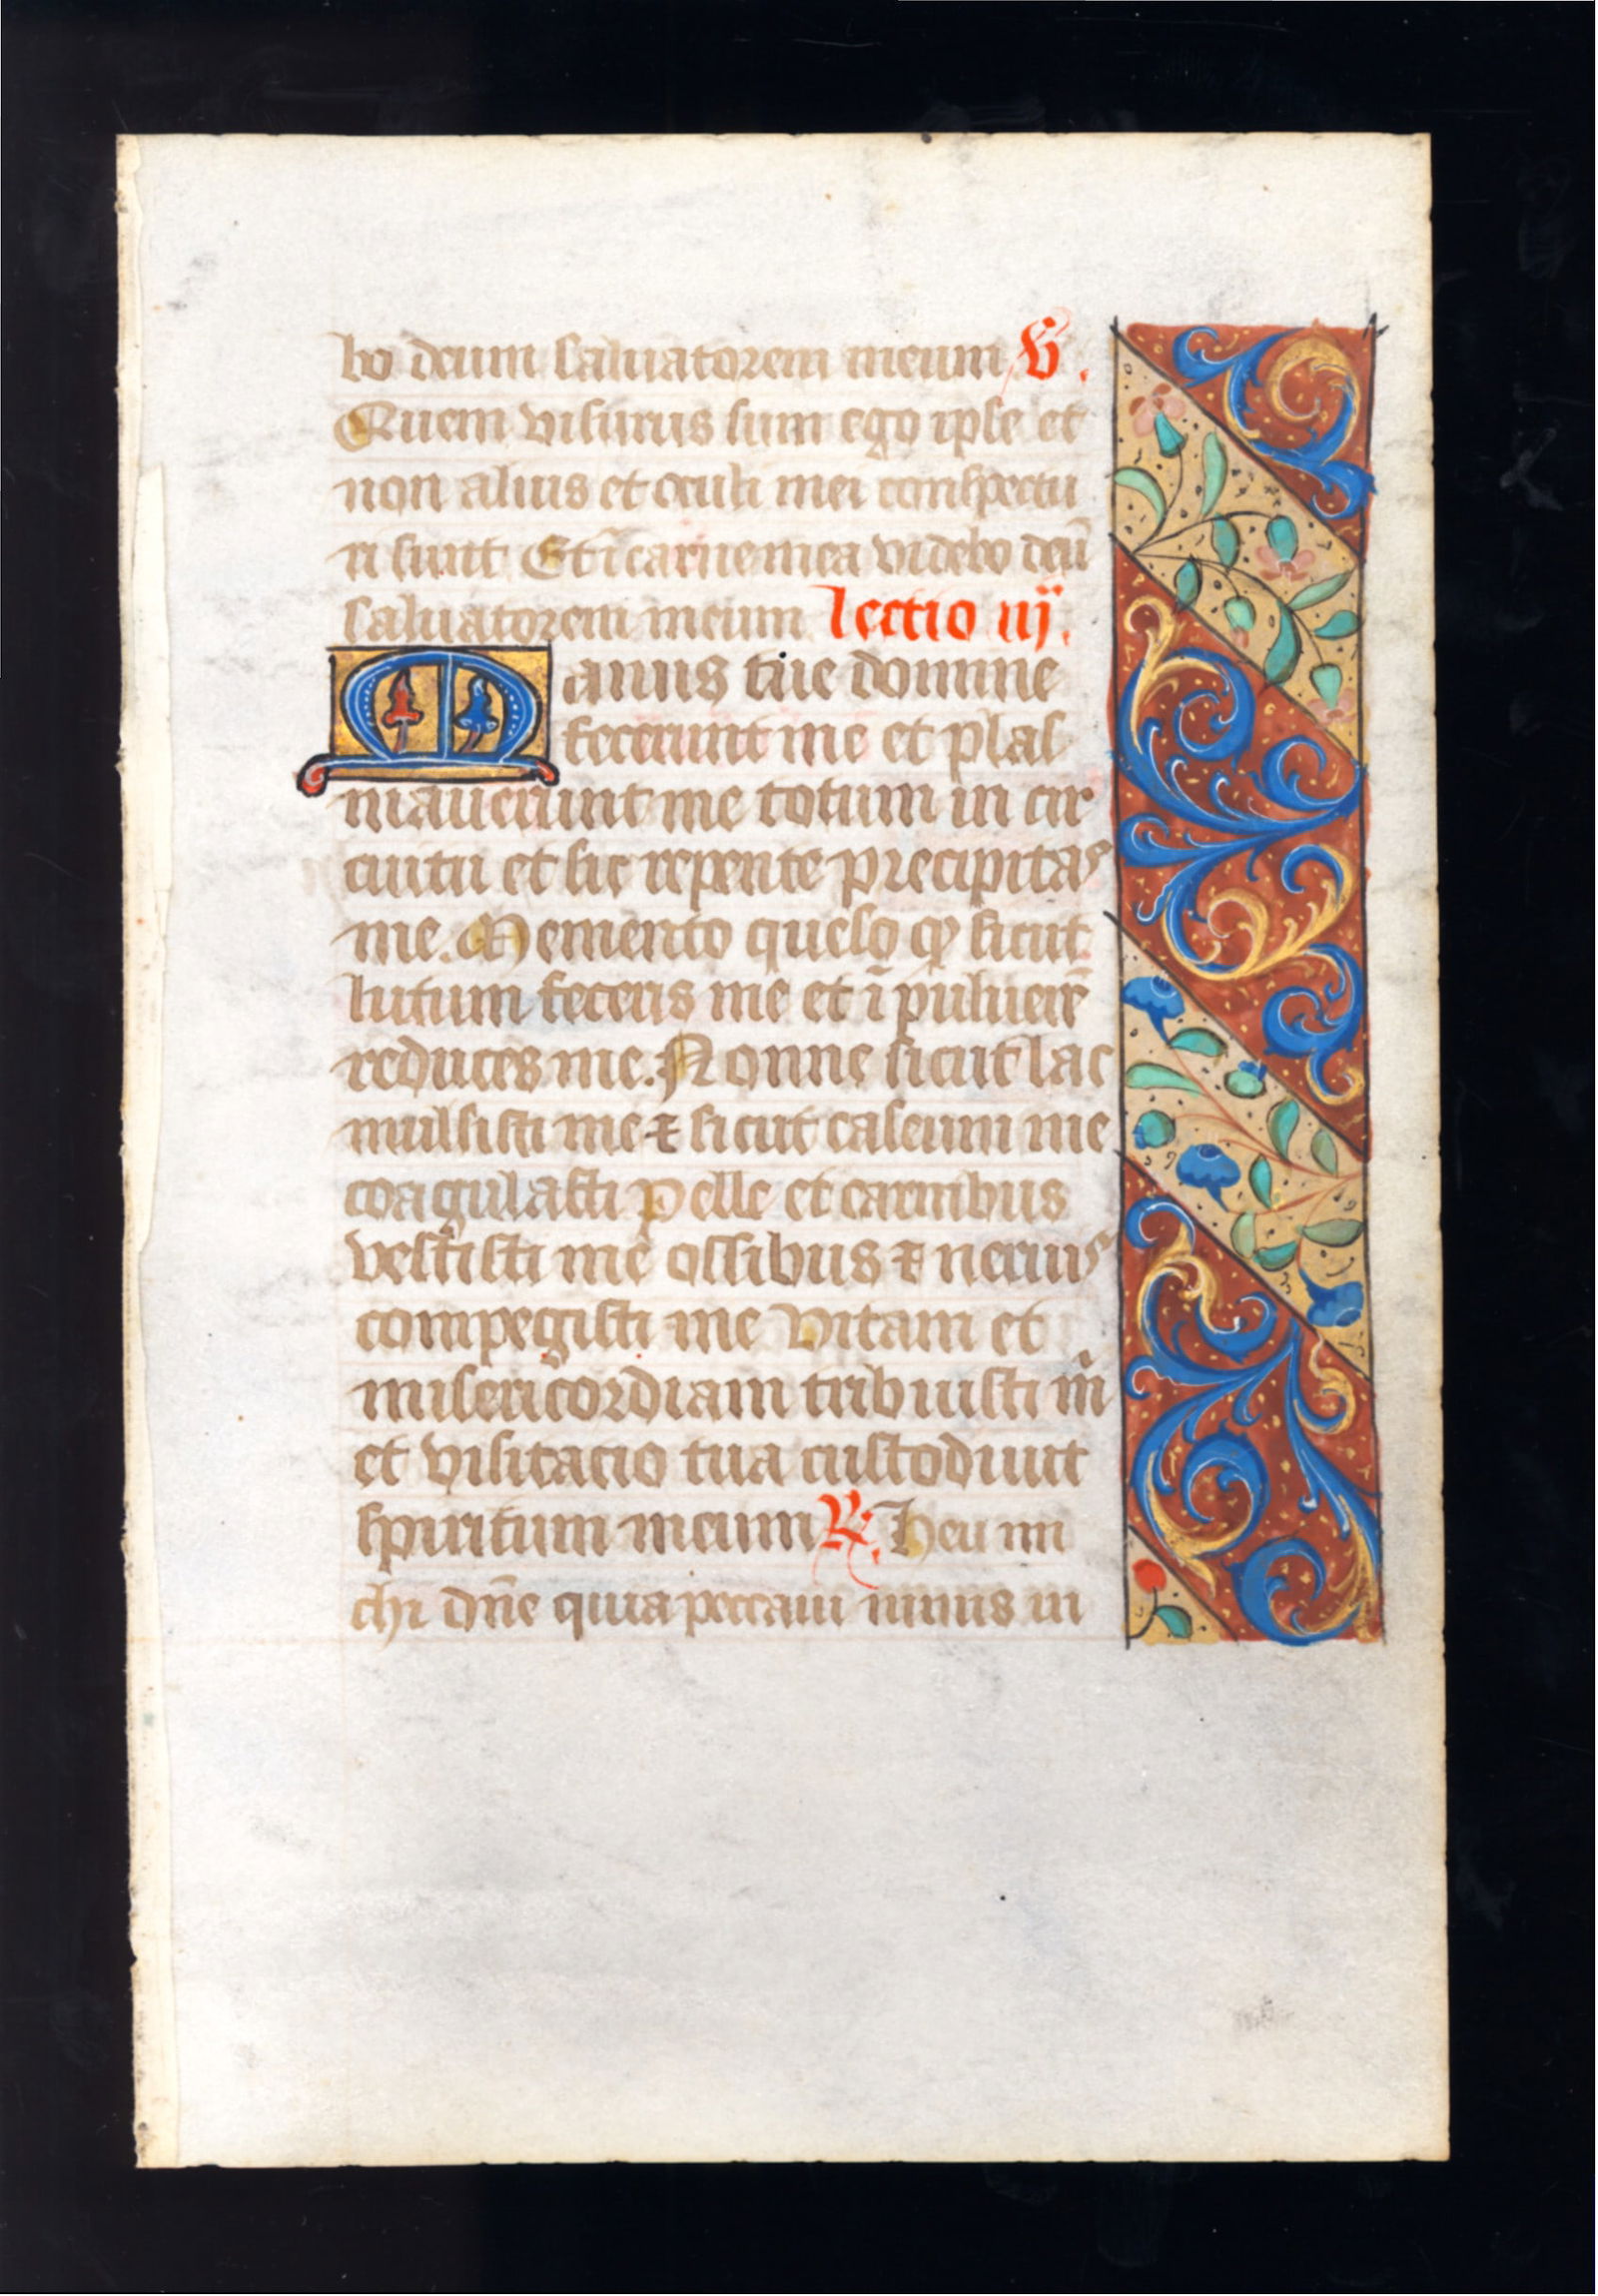 bo deum saluatorem meum V.
Quem visurus sum ego ipse et
non alius et oculi mei conspectu
ri sunt Et ī carne mea videbo deū
saluatorem meum lectio iij.
Manus tue domine
fecerunt me et plas
mauerunt me totum in cir
cuitu et sic repente precipitas
me. Memento queso qꝫ sicut
lutum feceris me et ī puluerē
reduces me. Nonne sicut lac
mulsisti me ⁊ sicut caseum me
coagulasti Pelle et carnibus
vestisti me ossibus ⁊ neruis
compegisti me Vitam et
misericordiam tribuisti m̄
et visitacio tua custodiuit
spiritum meum ℟. Heu mi
chi dn̄e quia peccaui nimis in